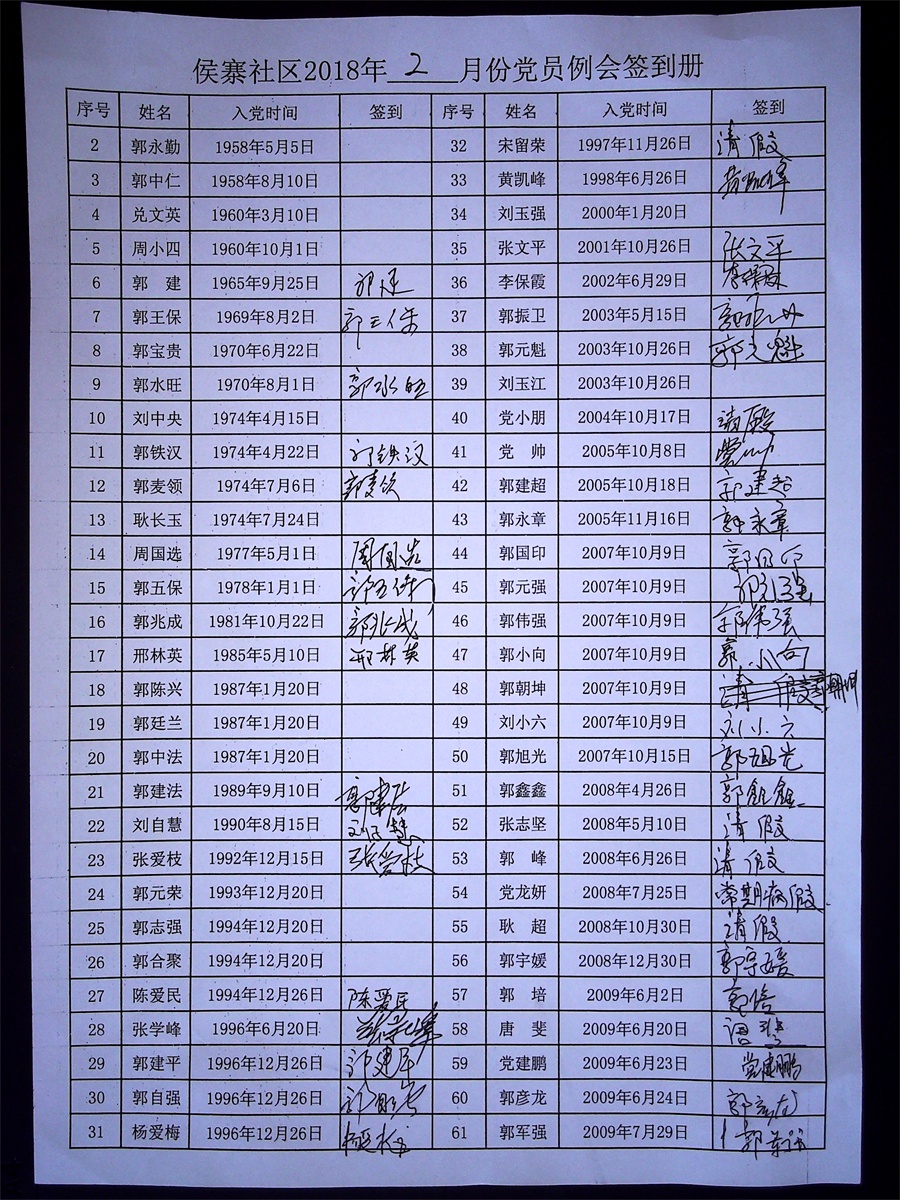 侯寨社区2018年 2 月份党员例会签到册
序号 姓名 入党时间 签到 序号 姓名 入党时间 签到
2 郭永勤 1958年5月5日 32 宋留荣 1997年11月26日 请假
3 郭中仁 1958年8月10日 33 黄凯峰 1998年6月26日 黄凯峰
4 兑文英 1960年3月10日 34 刘玉强 2000年1月20日
5 周小四 1960年10月1日 35 张文平 2001年10月26日 张文平
6 郭 建 1965年9月25日 郭建 36 李保霞 2002年6月29日 李保霞
7 郭王保 1969年8月2日 郭王保 37 郭振卫 2003年5月15日
8 郭宝贵 1970年6月22日 38 郭元魁 2003年10月26日 郭元魁
9 郭水旺 1970年8月1日 郭水旺 39 刘玉江 2003年10月26日
10 刘中央 1974年4月15日 40 党小朋 2004年10月17日 请假
11 郭铁汉 1974年4月22日 郭铁汉 41 党 帅 2005年10月8日 党帅
12 郭麦领 1974年7月6日 郭麦领 42 郭建超 2005年10月18日 郭建超
13 耿长玉 1974年7月24日 43 郭永章 2005年11月16日 郭永章
14 周国选 1977年5月1日 周国选 44 郭国印 2007年10月9日 郭国印
15 郭五保 1978年1月1日 郭五保 45 郭元强 2007年10月9日 郭元强
16 郭兆成 1981年10月22日 郭兆成 46 郭伟强 2007年10月9日 郭伟强
17 邢林英 1985年5月10日 邢林英 47 郭小向 2007年10月9日 郭小向
18 郭陈兴 1987年1月20日 48 郭朝坤 2007年10月9日 请假 郭朝坤
19 郭廷兰 1987年1月20日 49 刘小六 2007年10月9日 刘小六
20 郭中法 1987年1月20日 50 郭旭光 2007年10月15日 郭旭光
21 郭建法 1989年9月10日 郭建法 51 郭鑫鑫 2008年4月26日 郭鑫鑫
22 刘自慧 1990年8月15日 刘自慧 52 张志坚 2008年5月10日 请假
23 张爱枝 1992年12月15日 张爱枝 53 郭 峰 2008年6月26日 请假
24 郭元荣 1993年12月20日 54 党龙妍 2008年7月25日 常期病假
25 郭志强 1994年12月20日 55 耿 超 2008年10月30日 请假
26 郭合聚 1994年12月20日 56 郭宇媛 2008年12月30日 郭宇媛
27 陈爱民 1994年12月26日 陈爱民 57 郭 培 2009年6月2日 郭培
28 张学峰 1996年6月20日 张学峰 58 唐 斐 2009年6月20日 唐斐
29 郭建平 1996年12月26日 郭建平 59 党建鹏 2009年6月23日 党建鹏
30 郭自强 1996年12月26日 郭自强 60 郭彦龙 2009年6月24日 郭彦龙
31 杨爱梅 1996年12月26日 杨爱梅 61 郭军强 2009年7月29日 郭军强